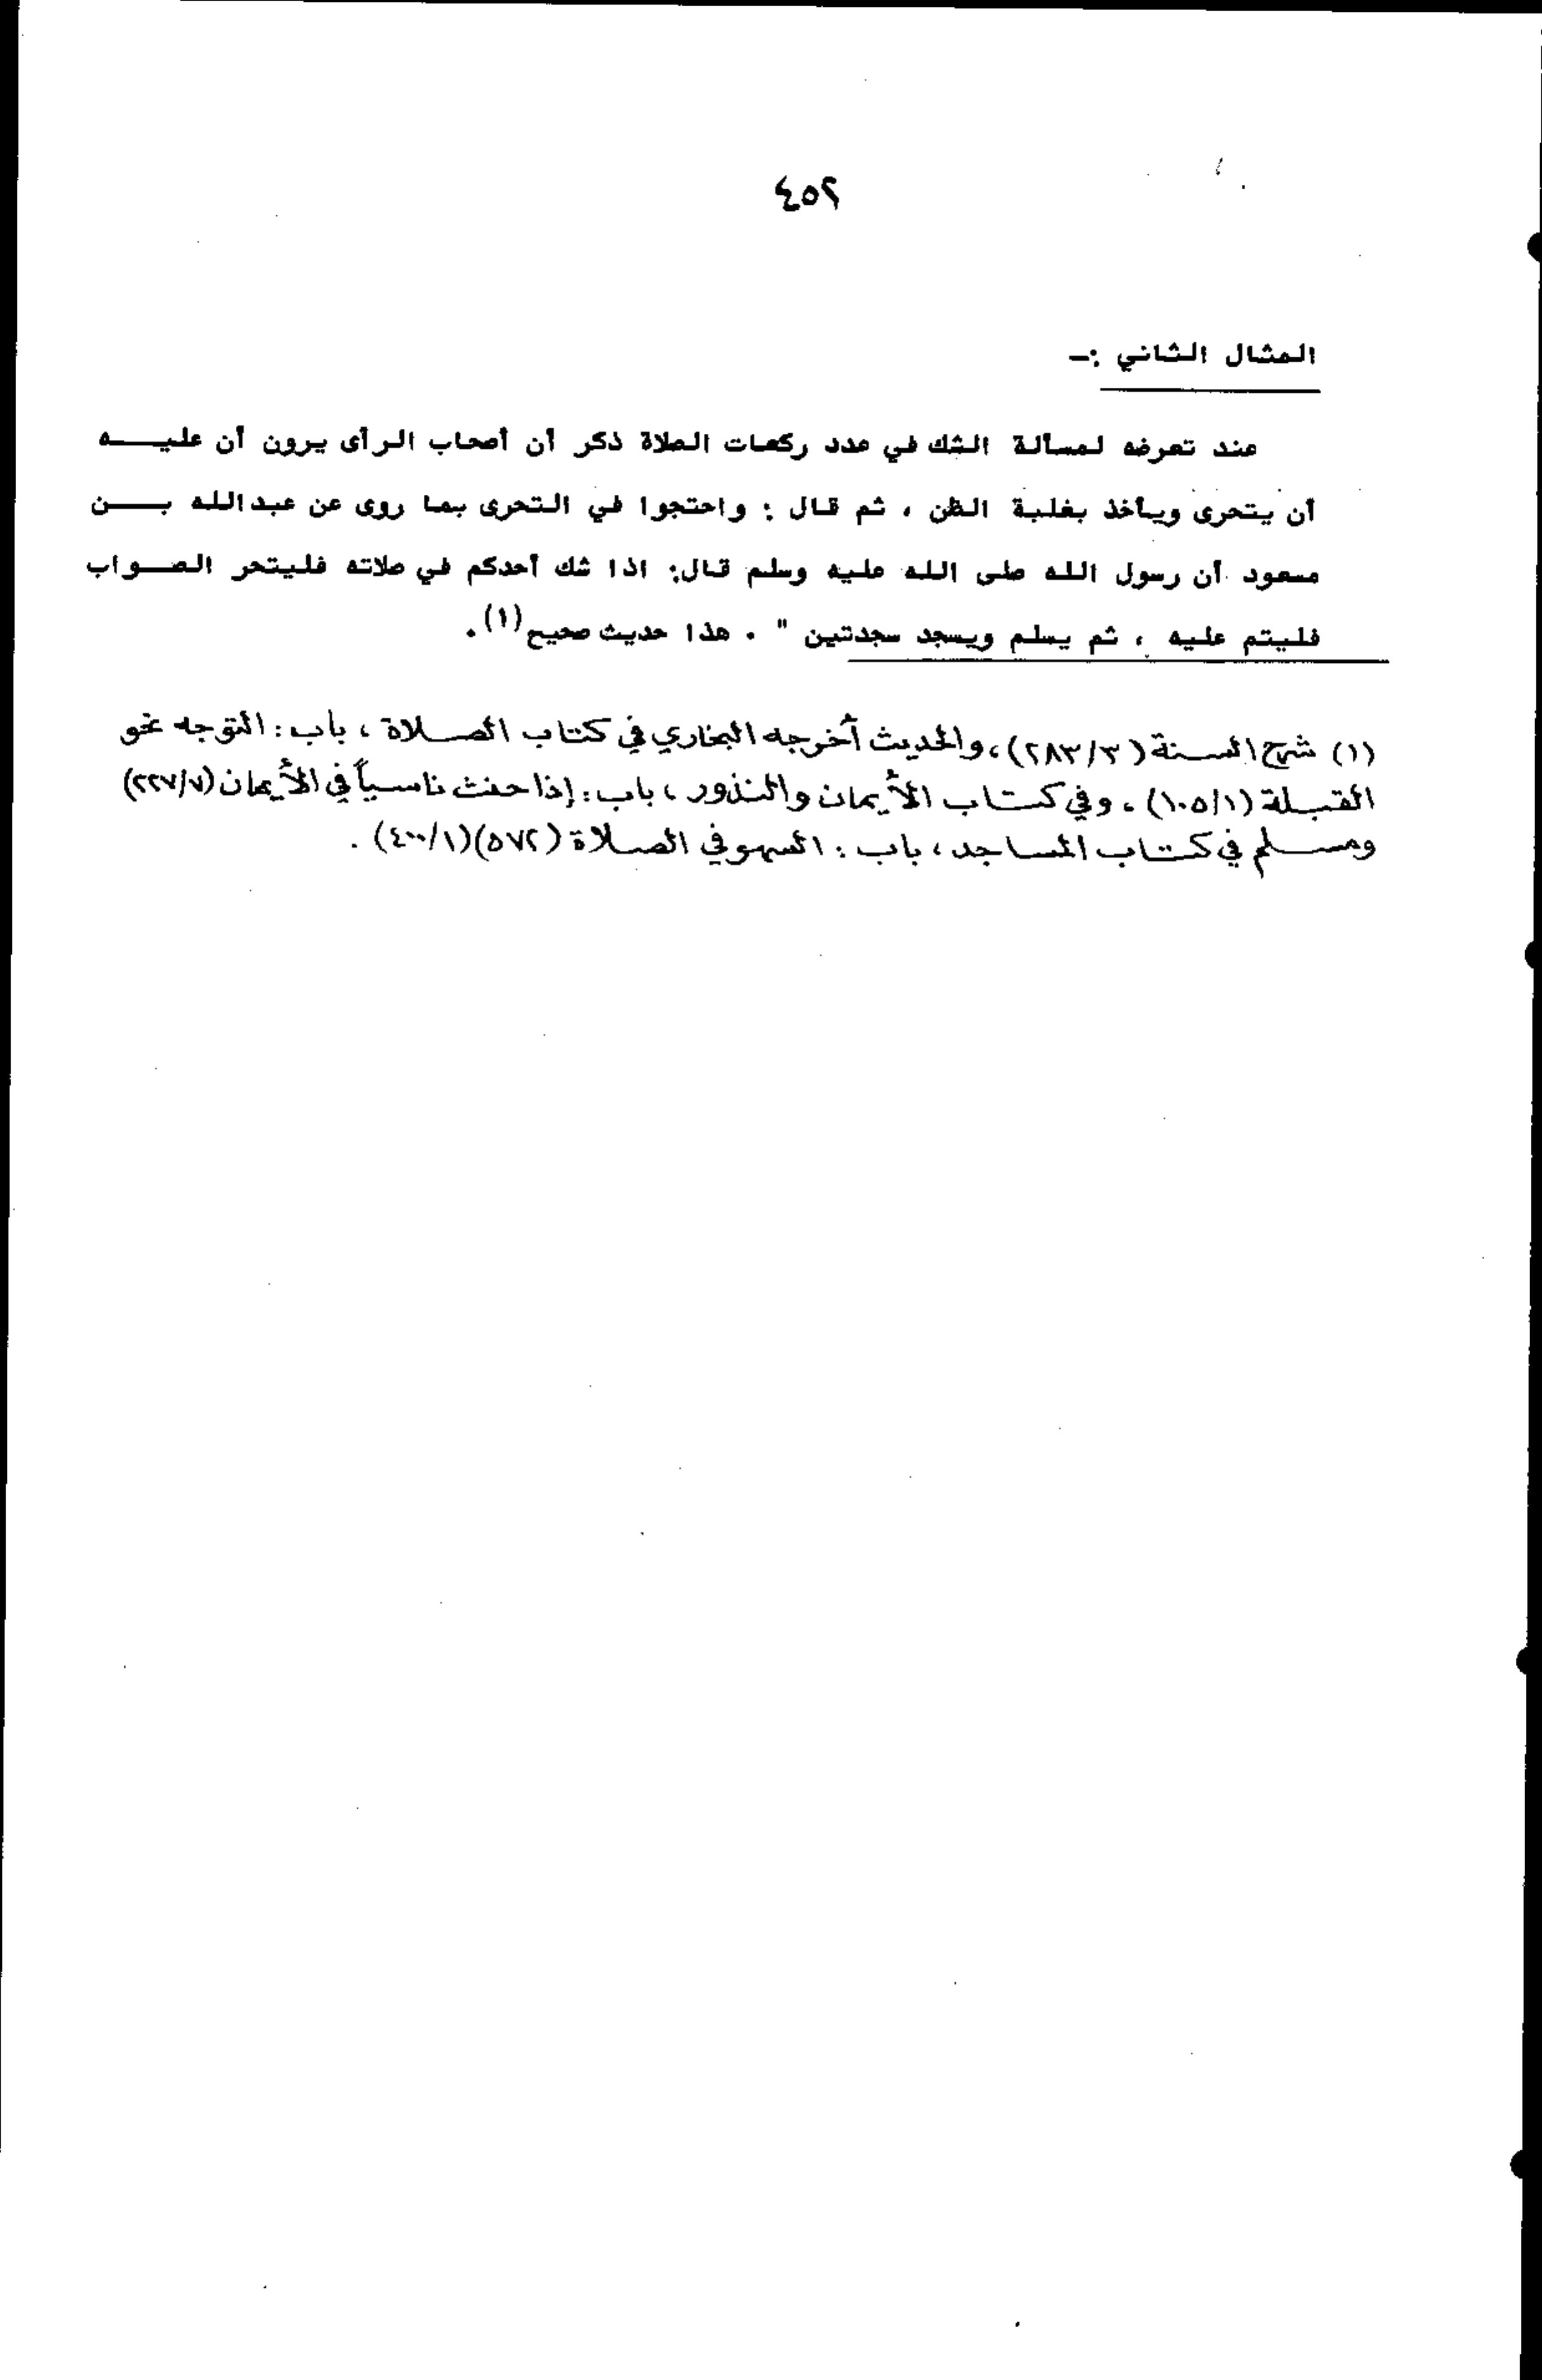 ٤٥٢
المثال الثاني :ـ
عند تعرضه لمسألة الشك في عدد ركعات الصلاة ذكر أن أصحاب الرأى يرون أن عليـــه
أن يتحرى ويأخذ بغلبة الظن ، ثم قال : واحتجوا في التحرى بما روى عن عبدالله بـــن
مسعود أن رسول الله صلى الله عليه وسلم قال: اذا شك أحدكم في صلاته فليتحر الصــواب
فليتم عليه ، ثم يسلم ويسجد سجدتين " . هذا حديث صحيح(١).
(١) شرح السنة (٢٨٣/٣)، والحديث أخرجه البخاري في كتاب الصلاة ، باب : التوجه نحو
القبلة (١٠٥/١) ، وفي كتاب الأيمان والنذور ، باب : إذا حنث ناسياً في الأيمان (٢٢٧/٧)
ومسلم في كتاب المساجد ، باب : السهو في الصلاة (٥٧٢)(٤٠٠/١) .